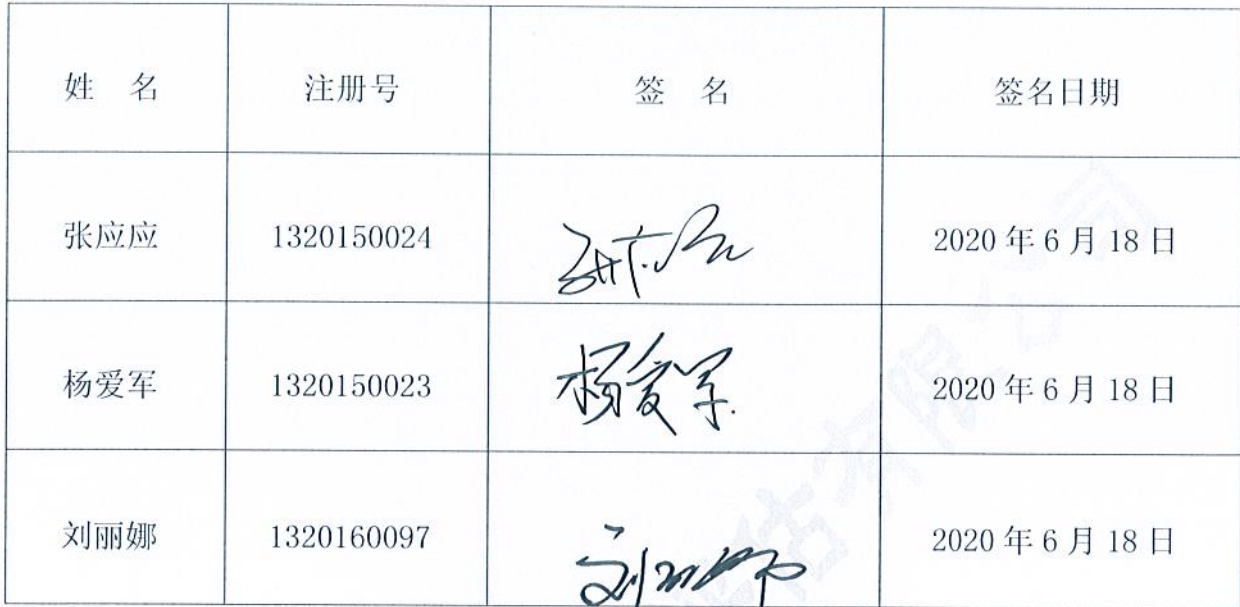 姓 名 注册号 签 名 签名日期
张应应 1320150024 张应应 2020年6月18日
杨爱军 1320150023 杨爱军 2020年6月18日
刘丽娜 1320160097 刘丽娜 2020年6月18日